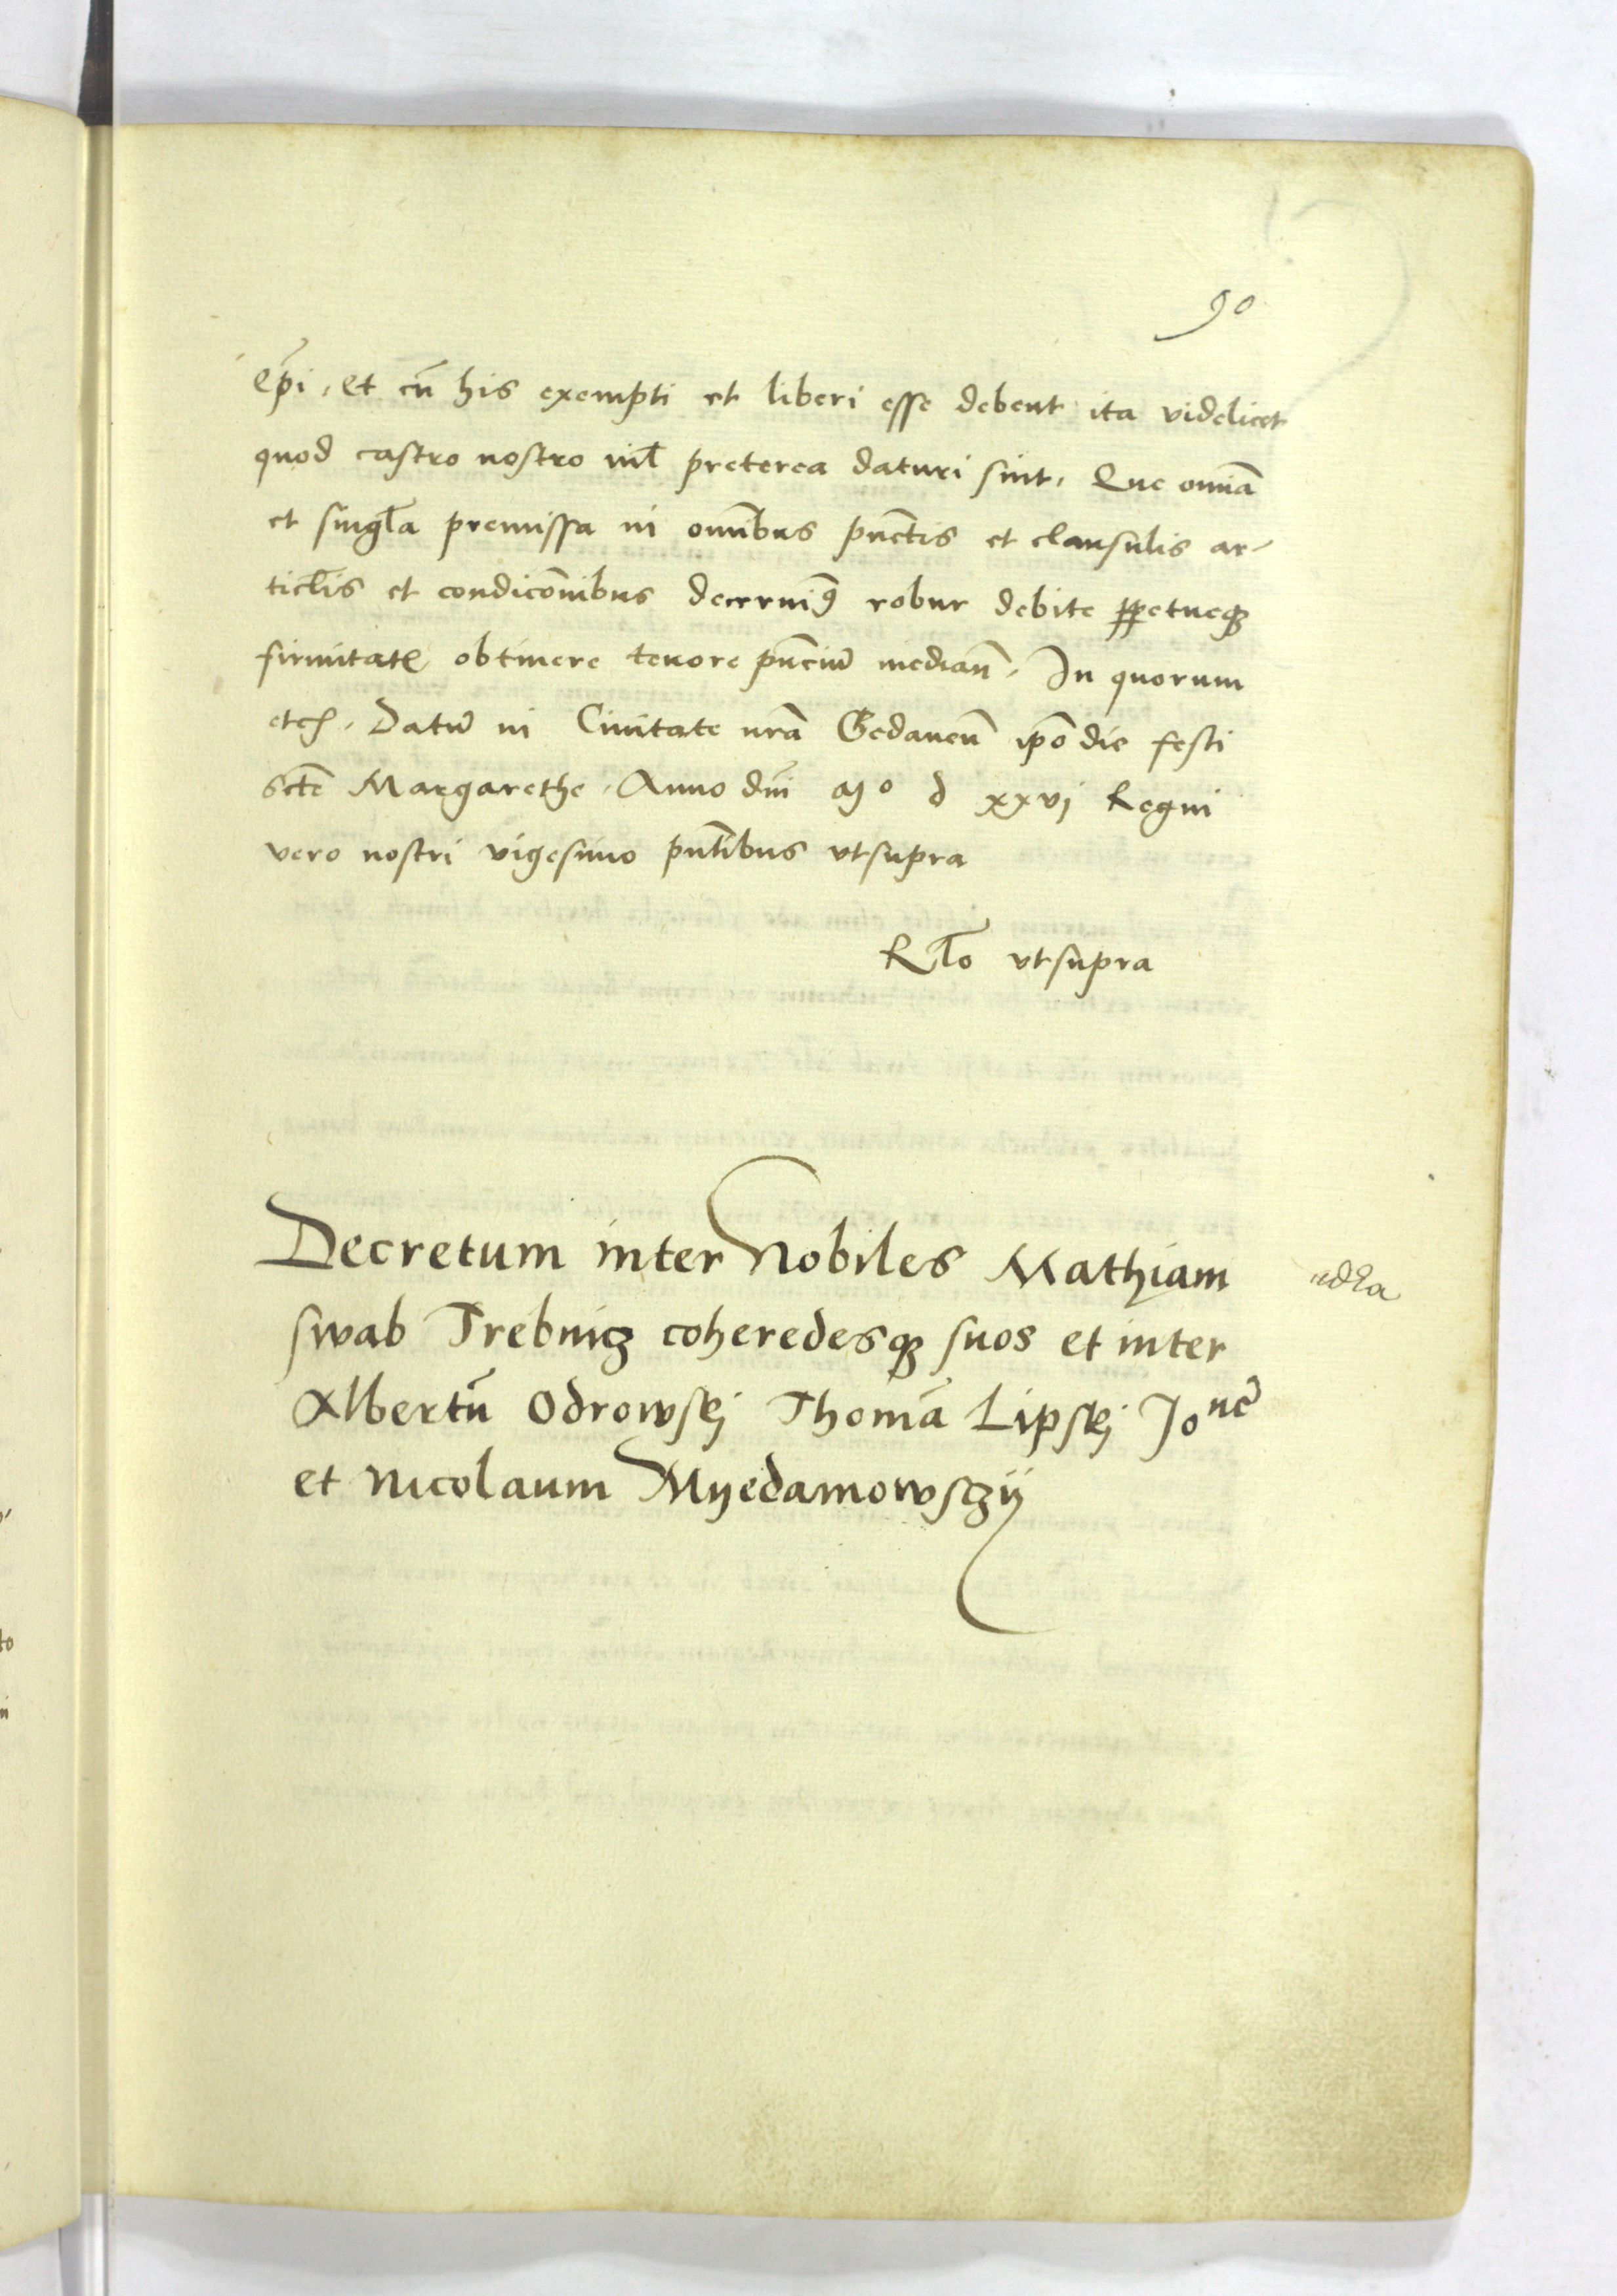 90
Ep̄i, Et cū his exempti et liberi esse debent ita videlicet
quod castro nostro nil̄ preterea daturi sint, Que omniā
et singl̄a premissa in omnibus pūctis et clausulis ar-
ticl̄is et condicōnibus decernimꝰ robur debite ꝑpetueqꝫ
firmitatē obtinere tenore pn̄ciū mediañ, In quorum
etcꝭ, Datū in Ciuitate nr̄a Gedaneñ ip̄o die festi
sctē Margarethe, Anno dn̄i Mº d xxvj Regni
vero nostri vigesimo pn̄tibus vtsupra
Rl̄o vtsupra
Decretum inter Nobiles Mathiam
swab Trebnicz coheredesqꝫ suos et inter
Albertū Odrowskj Thomā Lipskj Joⁿᵉ̄
et Nicolaum Myedamowsczij